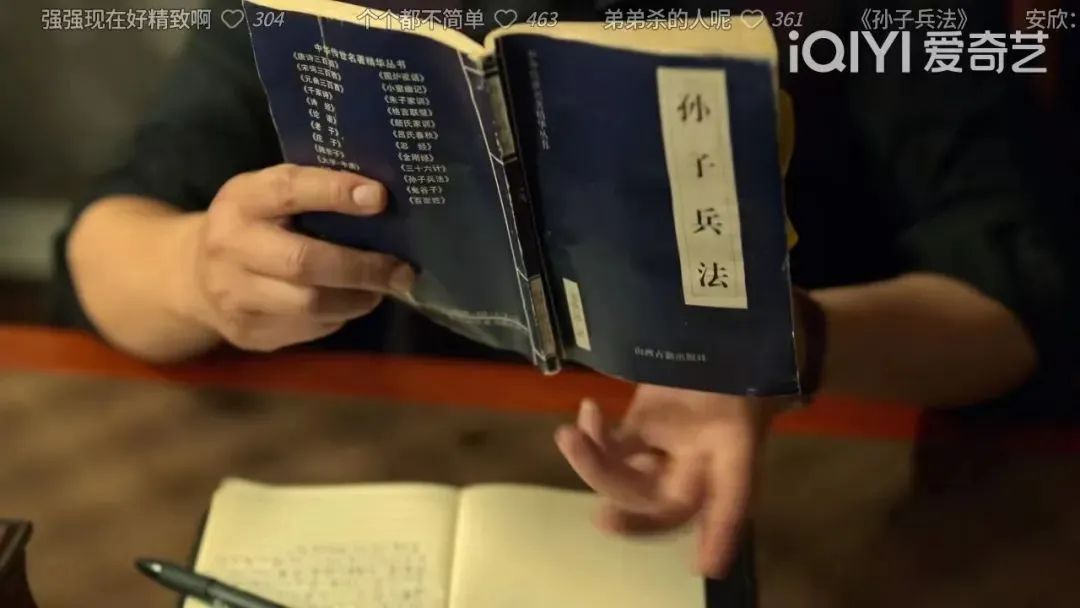 强强现在好精致啊 304
个个都不简单 463
弟弟杀的人呢 361
《孙子兵法》
安欣:
iQIYI 爱奇艺
中华传世名著精华丛书
《唐诗三百首》
《宋词三百首》
《元曲三百首》
《千家诗》
《诗经》
《论语》
《老子》
《庄子》
《围炉夜话》
《小窗幽记》
《朱子家训》
《格言联璧》
《颜氏家训》
《吕氏春秋》
《忍经》
《金刚经》
《三十六计》
《孙子兵法》
《鬼谷子》
《百家姓》
孙子兵法
山西古籍出版社